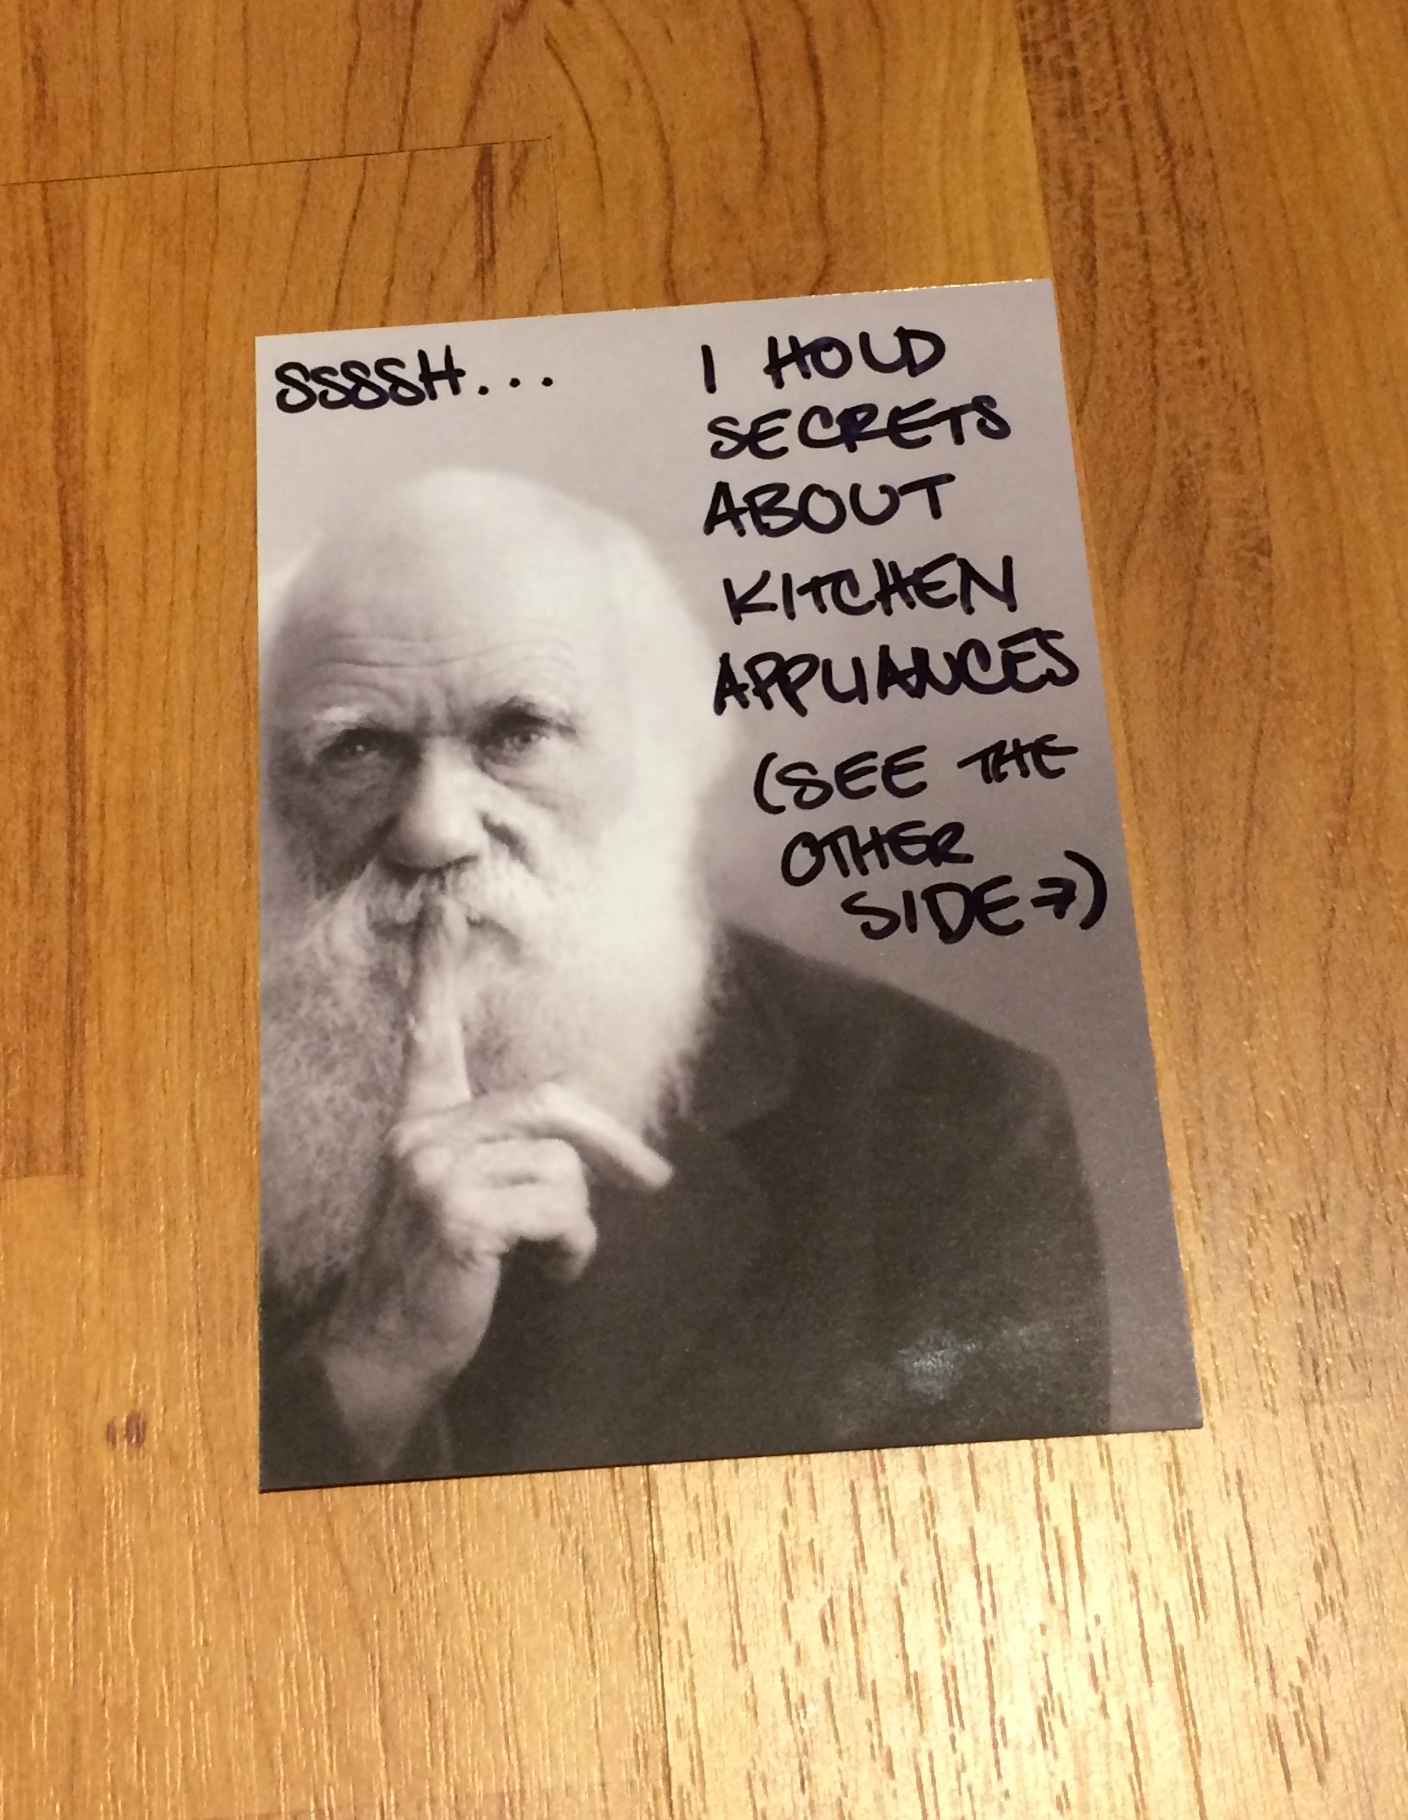 SSSSH...
I HOLD
SECRETS
ABOUT
KITCHEN
APPLIANCES
(SEE THE
OTHER
SIDE→)